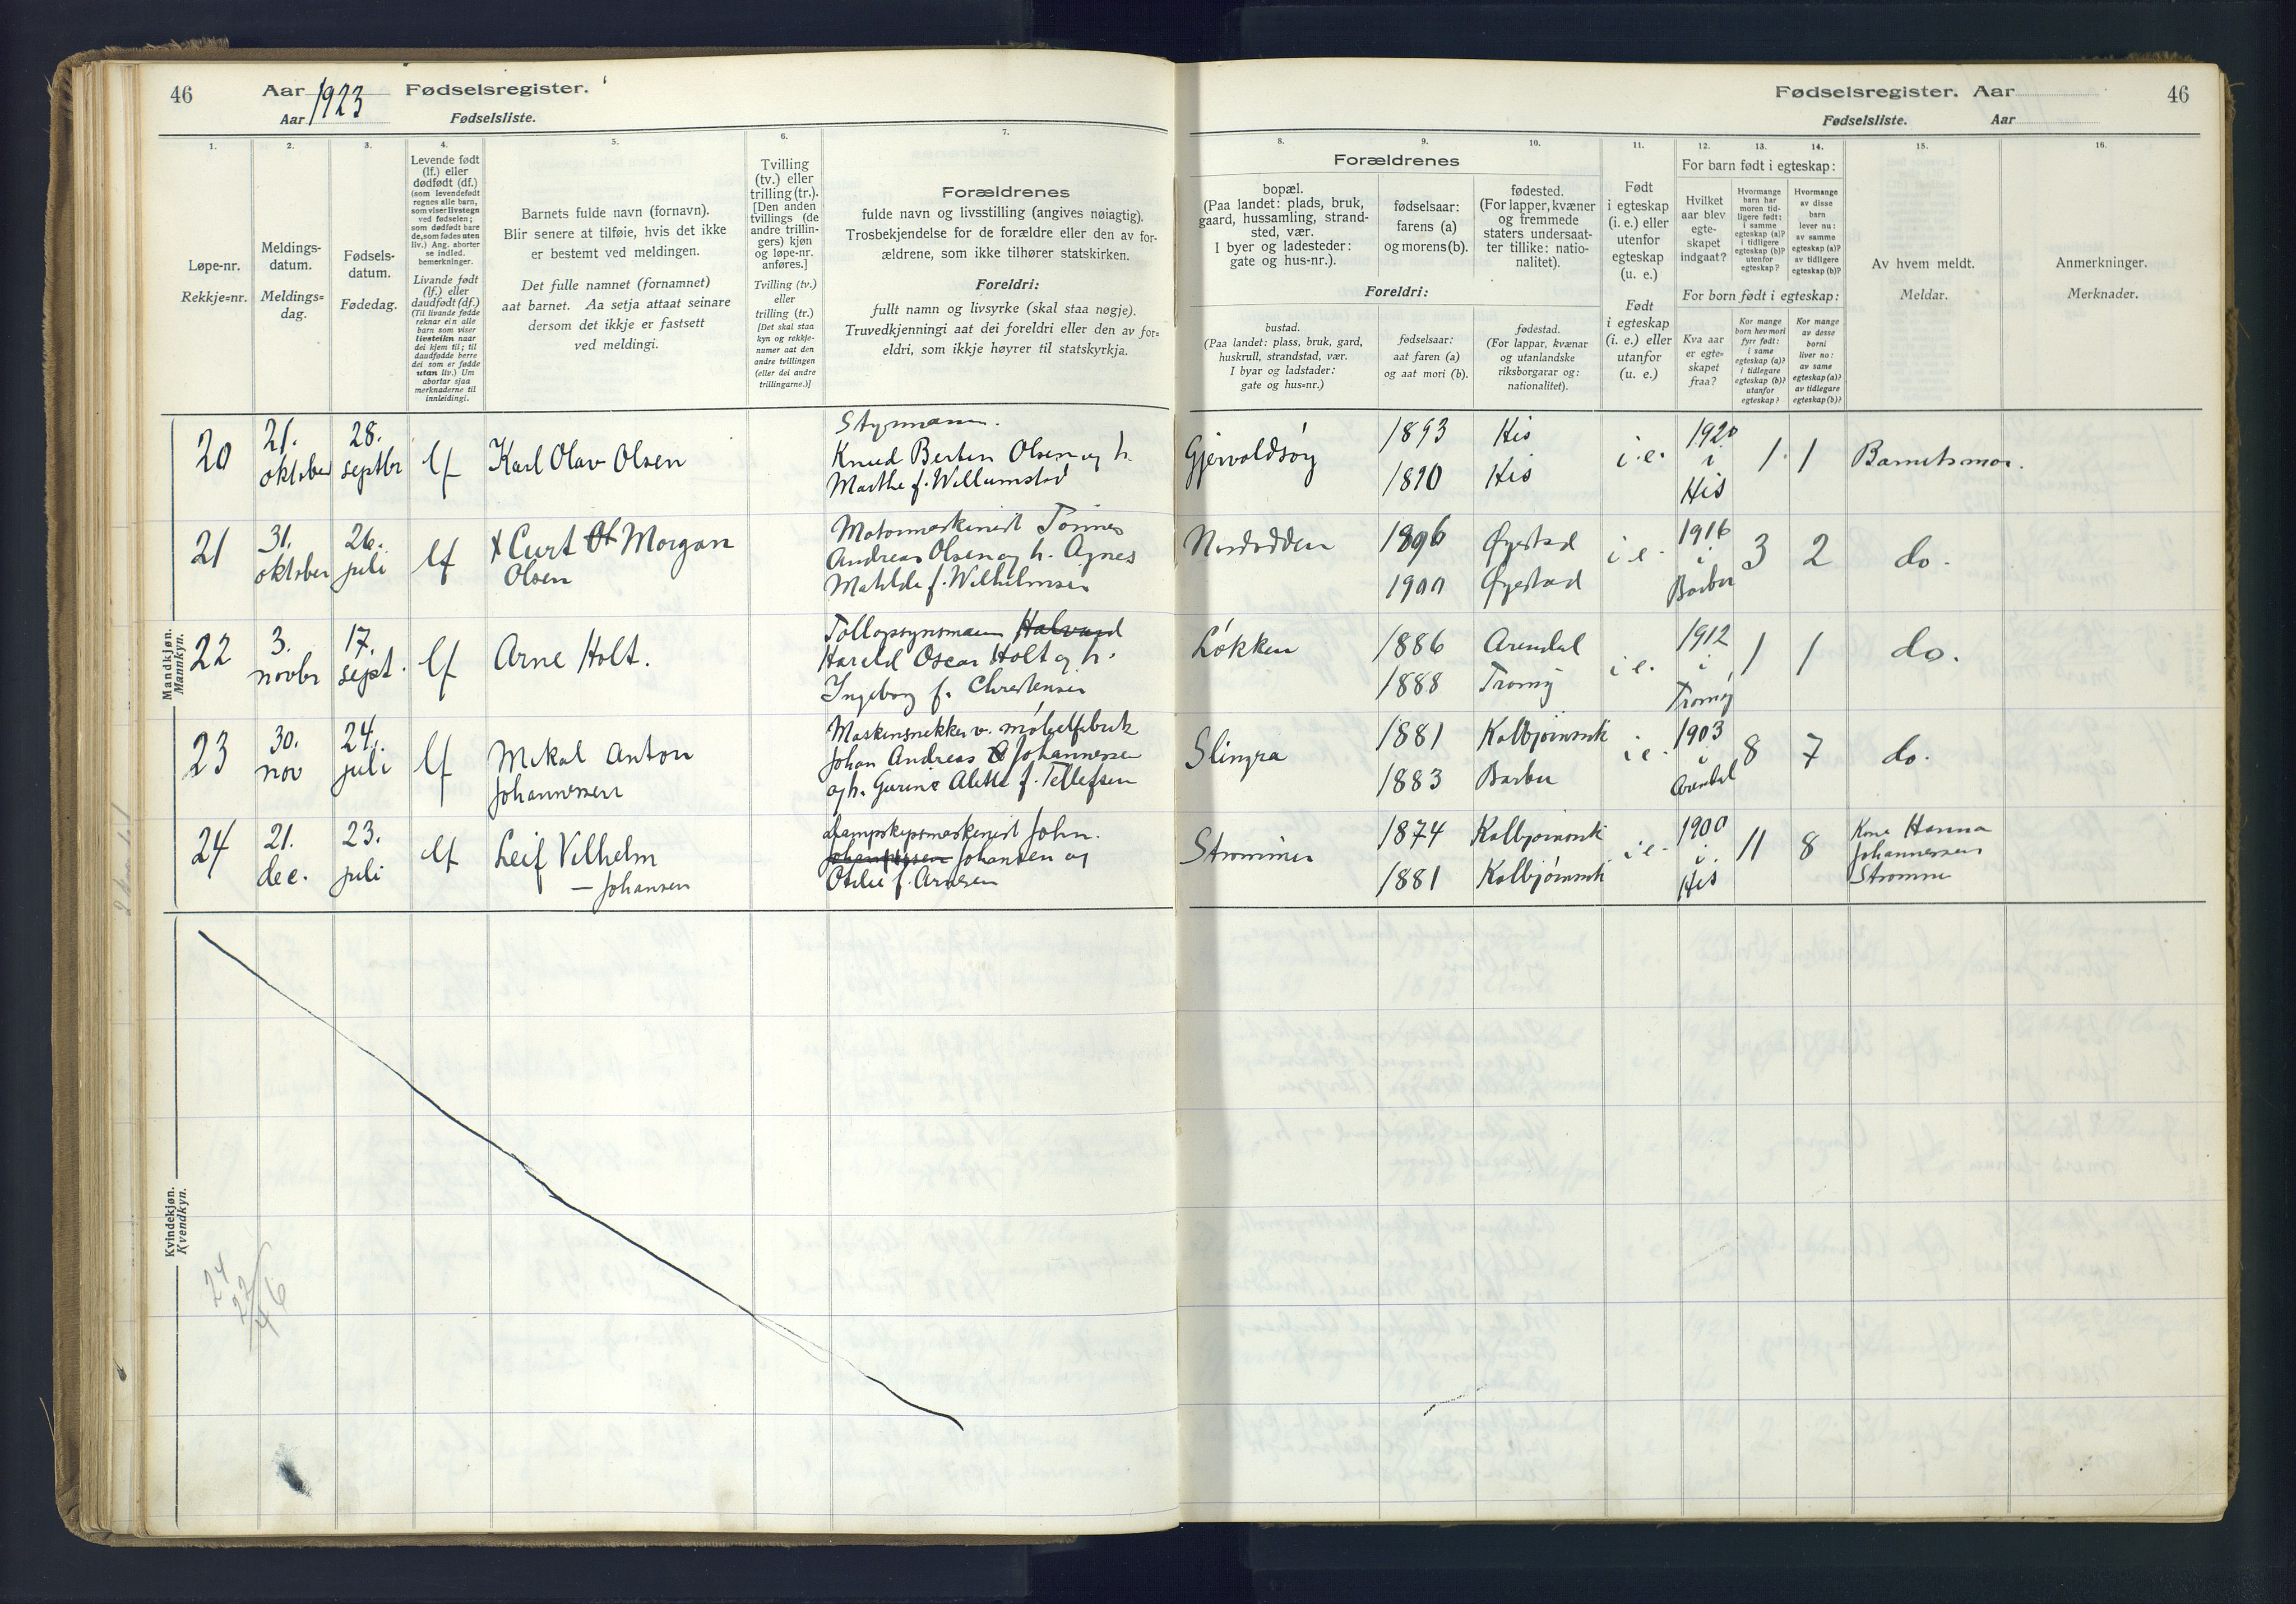 46
Aar 1923 Fødselsregister.
Aar Fødselsliste.
1.
Løpe-nr.
Rekkje=nr.
2.
Meldings-
datum.
Meldings=
dag.
3.
Fødsels-
datum.
Fødedag.
4.
Levende født
(lf.) eller
dødfødt (df.)
(som levendefødt
regnes alle barn,
som viser livstegn
ved fødselen;
som dødfødt bare
de, som fødes uten
liv.) Ang. aborter
se indled.
bemerkninger.
Livande født
(lf.) eller
daudfødt (df.)
(Til livande fødde
reknar ein alle
barn som viser
livsteikn naar
dei kjem til; til
daudfødde berre
dei som er fødde
utan liv.) Um
abortar sjaa
merknaderne til
innleidingi.
5.
Barnets fulde navn (fornavn).
Blir senere at tilføie, hvis det ikke
er bestemt ved meldingen.
Det fulle namnet (fornamnet)
aat barnet. Aa setja attaat seinare
dersom det ikkje er fastsett
ved meldingi.
6.
Tvilling
(tv.) eller
trilling (tr.).
[Den anden
tvillings (de
andre trillin-
gers) kjøn
og løpe-nr.
anføres.]
Tvilling (tv.)
eller
trilling (tr.)
[Det skal staa
kyn og rekkje-
numer aat den
andre tvillingen
(eller dei andre
trillingarne.)]
7.
Forældrenes
fulde navn og livsstilling (angives nøiagtig).
Trosbekjendelse for de forældre eller den av for-
ældrene, som ikke tilhører statskirken.
Foreldri:
fullt namn og livsyrke (skal staa nøgje).
Truvedkjenningi aat dei foreldri eller den av for=
eldri, som ikkje høyrer til statskyrkja.
Mandkjøn.
Mannkyn.
20
21.
oktober
28.
septbr
lf
Karl Olav Olsen
Styrmann.
Knud Bertin Olsen og h.
Marthe f. Willumstad
21
31.
oktober
26.
juli
lf
x Curt Morgan
Olsen
Motormaskinist Tønnes
Andreas Olsen og h. Agnes
Matilde f. Wilhelmsen
22
3.
novbr
17.
sept.
lf
Arne Holt.
Tollopsynsmann Halvard
Harald Oscar Holt og h.
Ingeborg f. Christensen
23
30.
nov
24.
juli
lf
Mikal Anton
Johannessen
Maskinsnekker v. møbelfabrik
Johan Andreas Johannessen
og h. Gurine Alette f. Tellefsen
24
21.
dec.
23.
juli
lf
Leif Vilhelm
— Johansen
Dampskipsmaskinist John.
Johansen og
Otilie f. Arnesen
Kvindekjøn.
Kvendkyn.
24
22
46
Fødselsregister. Aar
46
Fødselsliste. Aar
8.
Forældrenes
bopæl.
(Paa landet: plads, bruk,
gaard, hussamling, strand-
sted, vær.
I byer og ladesteder:
gate og hus-nr.).
9.
fødselsaar:
farens (a)
og morens (b).
10.
fødested.
(For lapper, kvæner
og fremmede
staters undersaat-
ter tillike: natio-
nalitet).
Foreldri:
bustad.
(Paa landet: plass, bruk, gard,
huskrull, strandstad, vær.
I byar og ladstader:
gate og hus=nr.)
fødselsaar:
aat faren (a)
og aat mori (b).
fødestad.
(For lappar, kvænar
og utanlandske
riksborgarar og:
nationalitet).
11.
Født
i egteskap
(i. e.) eller
utenfor
egteskap
(u. e.)
Født
i egteskap
(i. e.) eller
utanfor
(u. e.)
12. 13. 14.
For barn født i egteskap:
Hvilket
aar blev
egte-
skapet
indgaat?
Hvormange
barn har
moren tid-
ligere født:
i samme
egteskap (a)?
i tidligere
egteskap (b)?
utenfor
egteskap?
Hvormange
av disse
barn
lever nu:
av samme
egteskap (a)?
av tidligere
egteskap (b)?
For born født i egteskap:
Kva aar
er egte=
skapet
fraa?
Kor mange
born hev mori
fyrr født:
i same
egteskap (a)?
i tidlegare
egteskap (b)?
utanfor
egteskap?
Kor mange
av desse
borni
liver no:
av same
egteskap (a)?
av tidlegare
egteskap (b)?
15.
Av hvem meldt.
Meldar.
16.
Anmerkninger.
Merknader.
Gjervoldsøy
1893
1890
His
His
i.e.
1920
i
His
1.
1
Barnets mor.
Nordodden
1896
1900
Øyestad
Øyestad
i e.
1916
i
Barbu
3
2
do.
Løkken
1886
1888
Arendal
Tromøy
i e.
1912
i
Tromøy
1
1
do.
Slingra
1881
1883
Kolbjørnsvik
Barbu
i e.
1903
i
Arendal
8
7
do.
Strømmen
1874
1881
Kolbjørnsvik
Kolbjørnsvik
i e.
1900
i.
His
11
8
Kone Hanna
Johannessen
Strømme